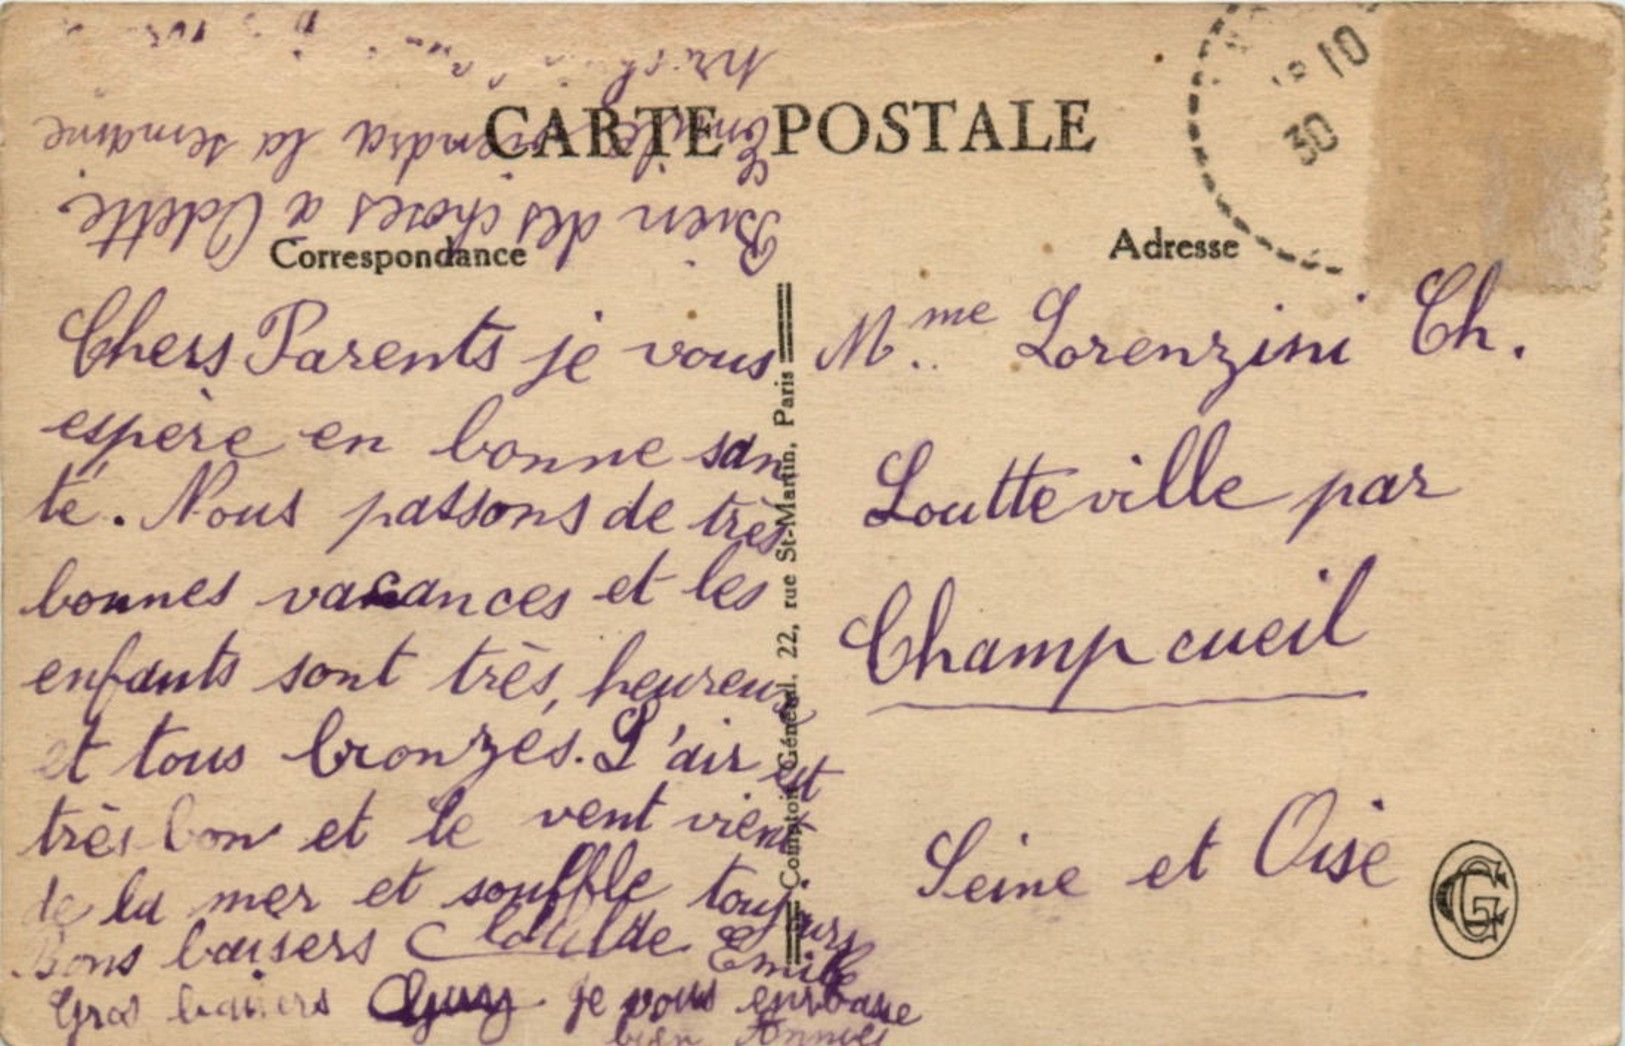 CARTE POSTALE
Correspondance
Adresse
30 10
Chers Parents je vous
espère en bonne san
té. Nous passons de très
bonnes vacances et les
enfants sont très, heureux
et tous bronzés. L'air est
très bon et le vent vient
de la mer et souffle toujours
Bons baisers Clotilde Emile
Gros baisers Guy je vous embrasse
bien
Bien des choses a Odette.
Emile viendra la semaine
Mme Lorenzini Ch.
Loutteville par
Champcueil
Seine et Oise
Comptoir Général, 22, rue St-Martin, Paris
CG